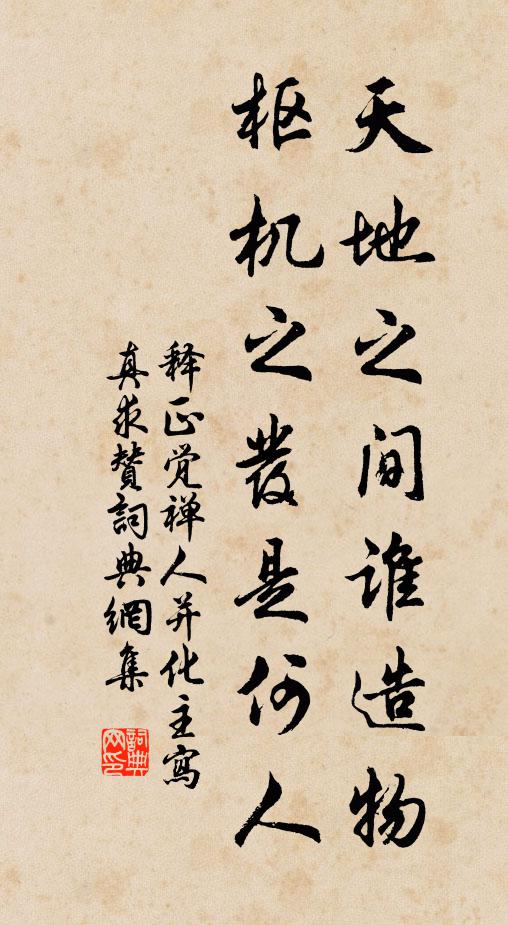 天地之间谁造物
枢机之發是何人
释正觉禅人并化主寫
真求赞詞典網集
詞典網印